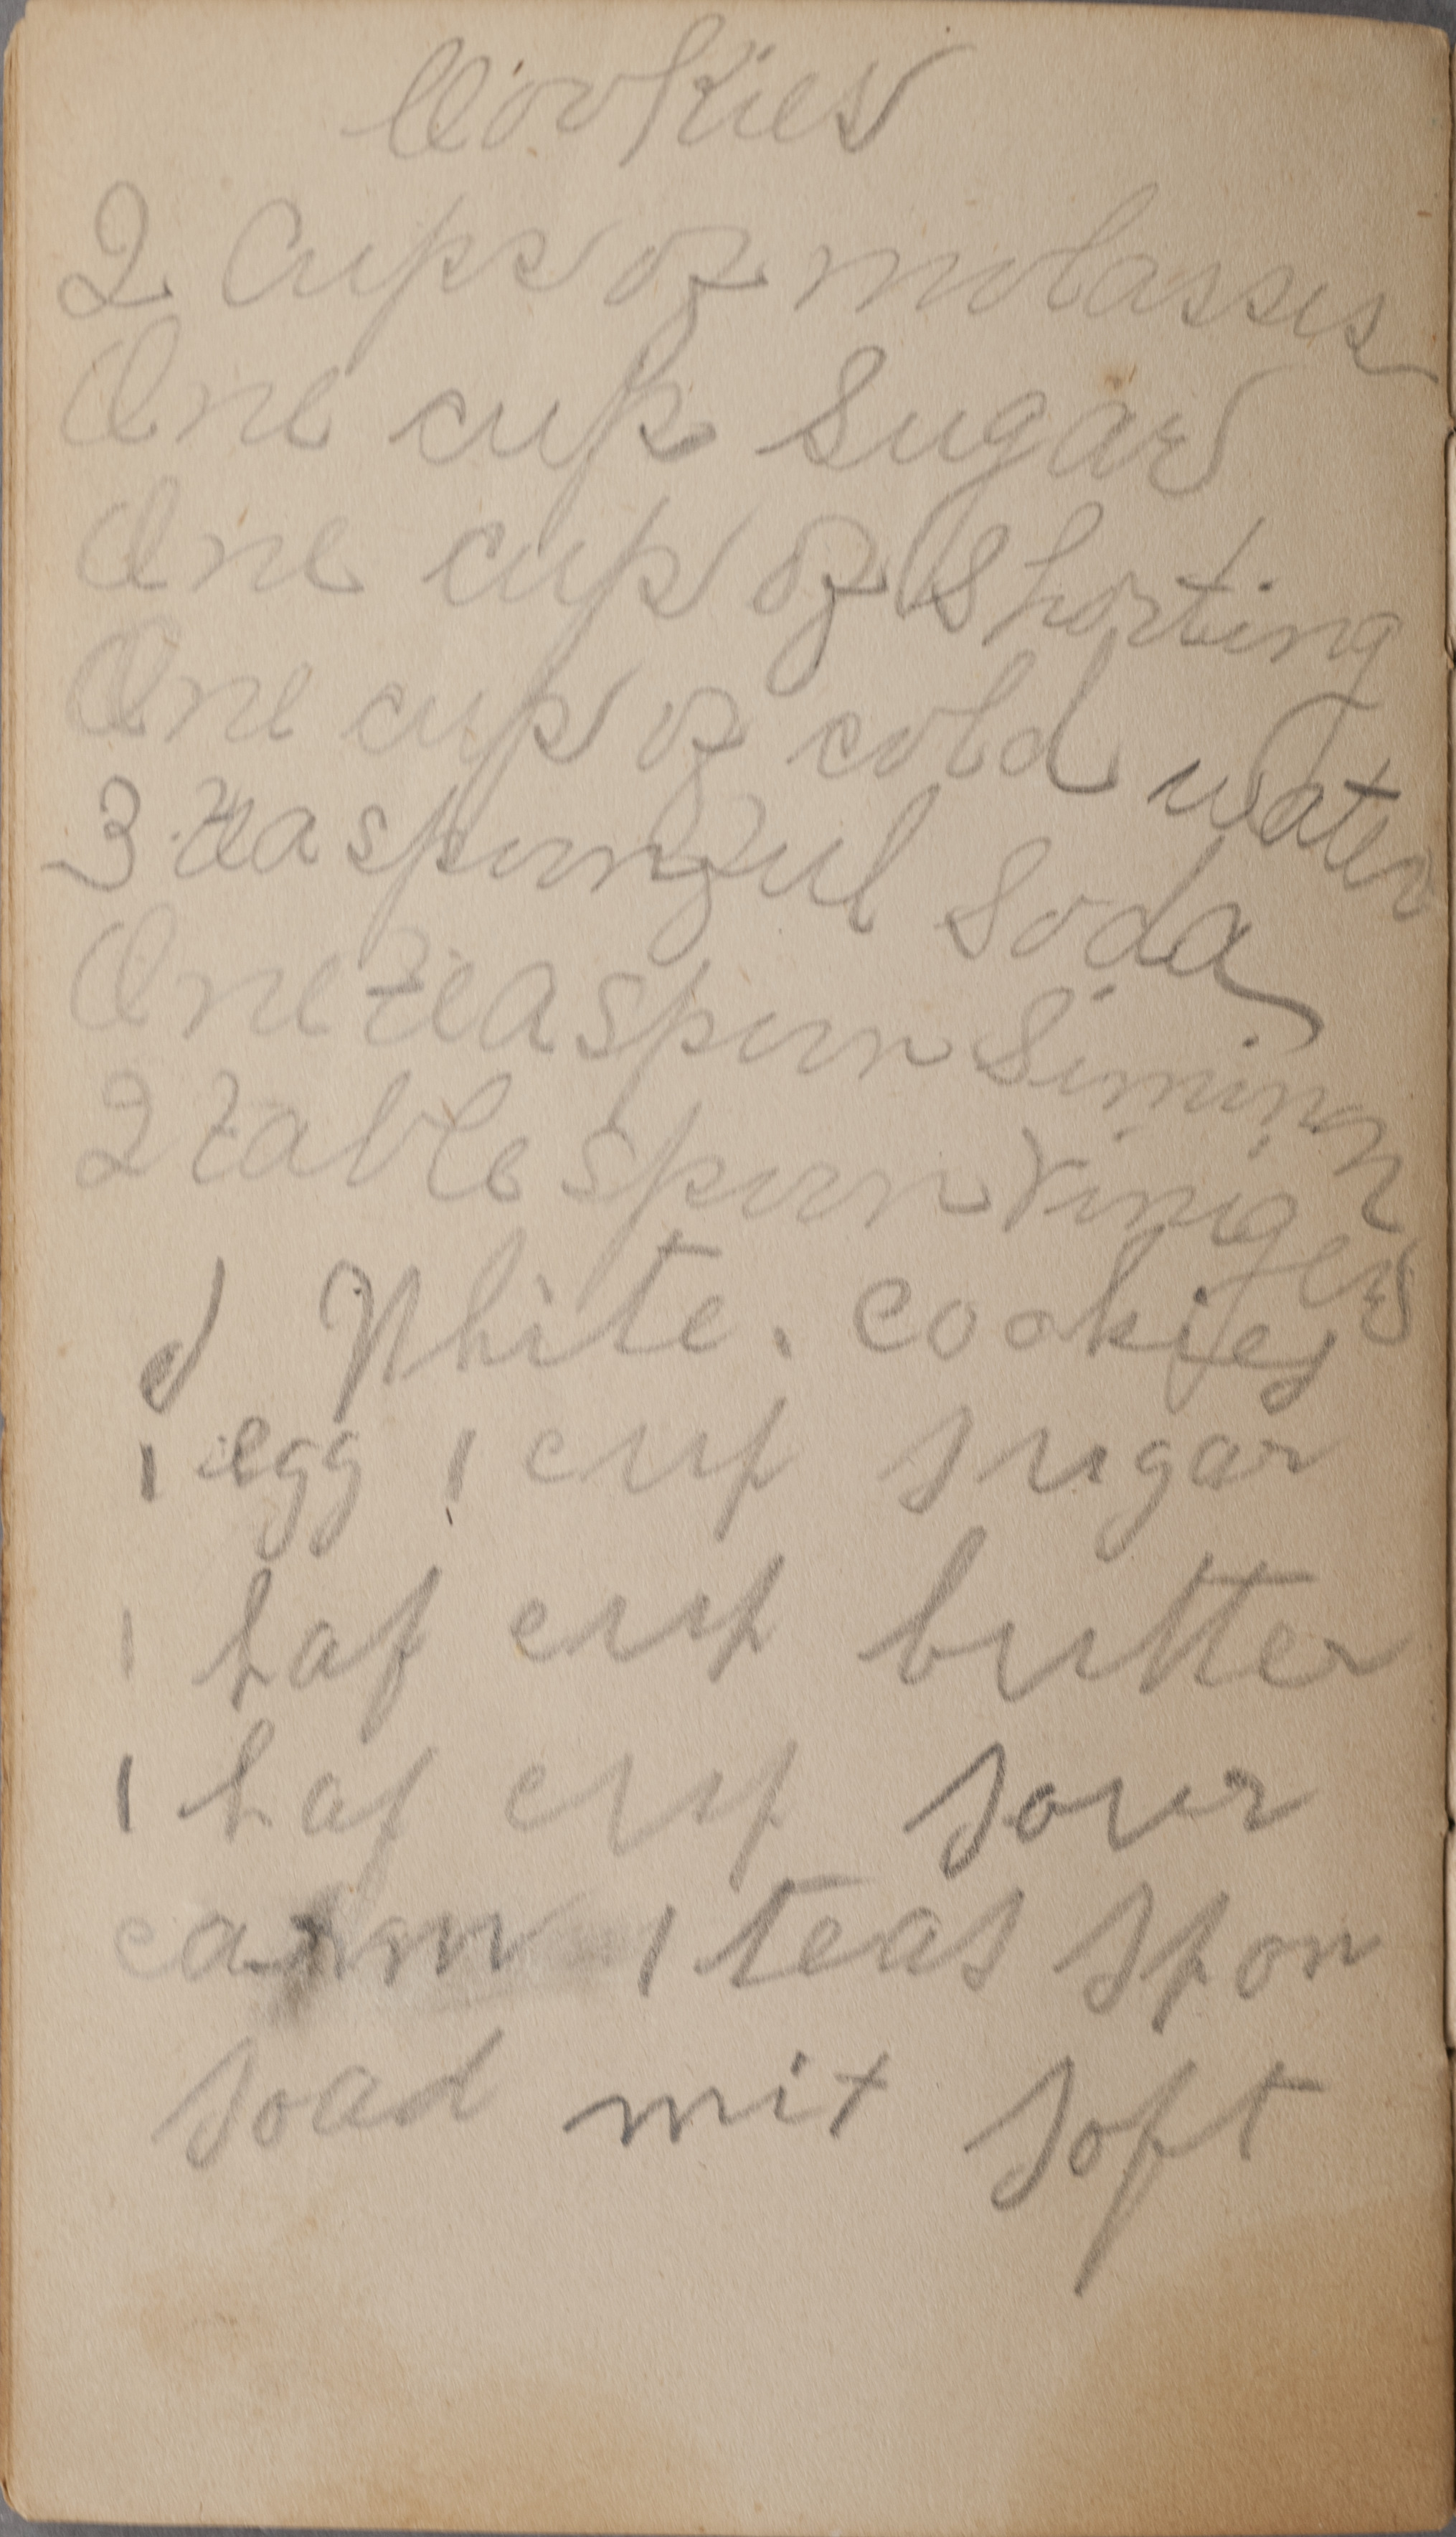 Cookies
2 Cups of molasses
One cup Sugar
One cup of Shorting
One cup of cold water
3 teaspoonful Soda
One teaspoon Siminon
2 table spoon Viniger
d White. cookies
1 egg 1 cup sugar
1 haf cup butter
1 haf cup sour
1 teas spon
soad mit soft